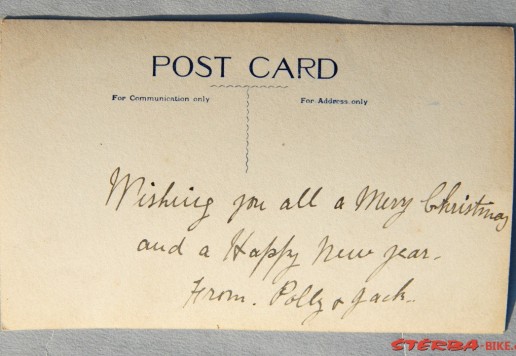 POST CARD
For Communication only
For Address only
Wishing you all a Merry Christmas
and a Happy New year.
From. Polly & Jack.
STERBA-BIKE.